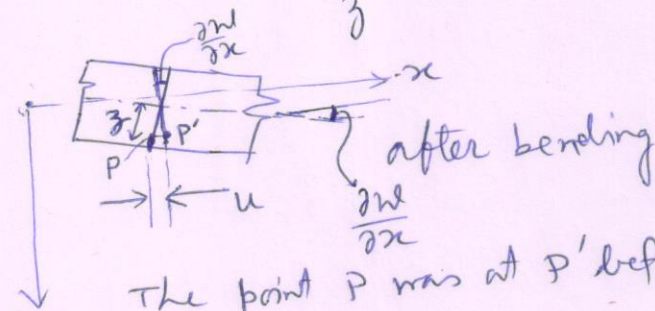 z
∂w/∂x
x
z
P P'
after bending
u
∂w/∂x
The point P was at P'